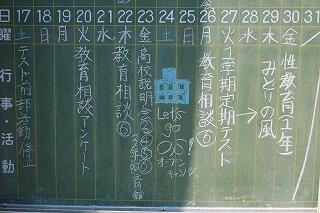 日 17 18 19 20 21 22 23 24 25 26 27 28 29 30 31
曜 土 日 月 火 水 木 金 土 日 月 火 水 木 金
行事・活動
テスト前部活動停止
教育相談アンケート
教育相談⑥
高校説明会
Let's go
教育相談⑥
1学期定期テスト
→
みどりの風
性教育(1年)